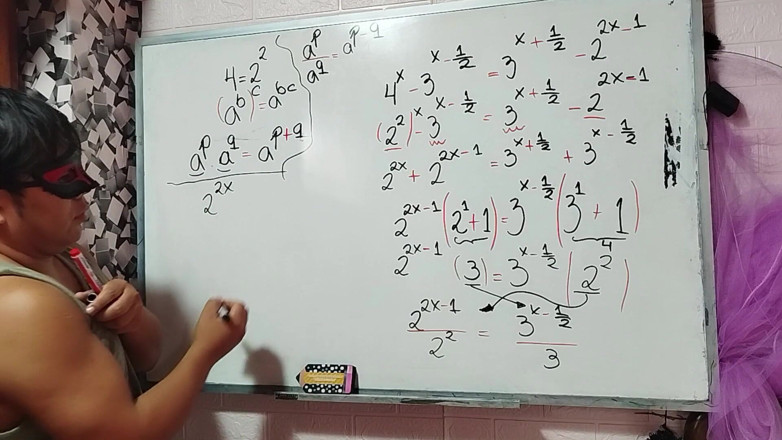 4 = 2^2
(a^b)^c = a^{bc}
a^p · a^q = a^{p+q}
2^{2x}
a^p/a^q = a^{p-q}
4^x - 3^{x-1/2} = 3^{x+1/2} - 2^{2x-1}
(2^2)^x - 3^{x-1/2} = 3^{x+1/2} - 2^{2x-1}
2^{2x} + 2^{2x-1} = 3^{x+1/2} + 3^{x-1/2}
2^{2x-1}(2^1 + 1) = 3^{x-1/2}(3^1 + 1)
4
2^{2x-1}(3) = 3^{x-1/2}(2^2)
2^{2x-1}/2^2 = 3^{x-1/2}/3